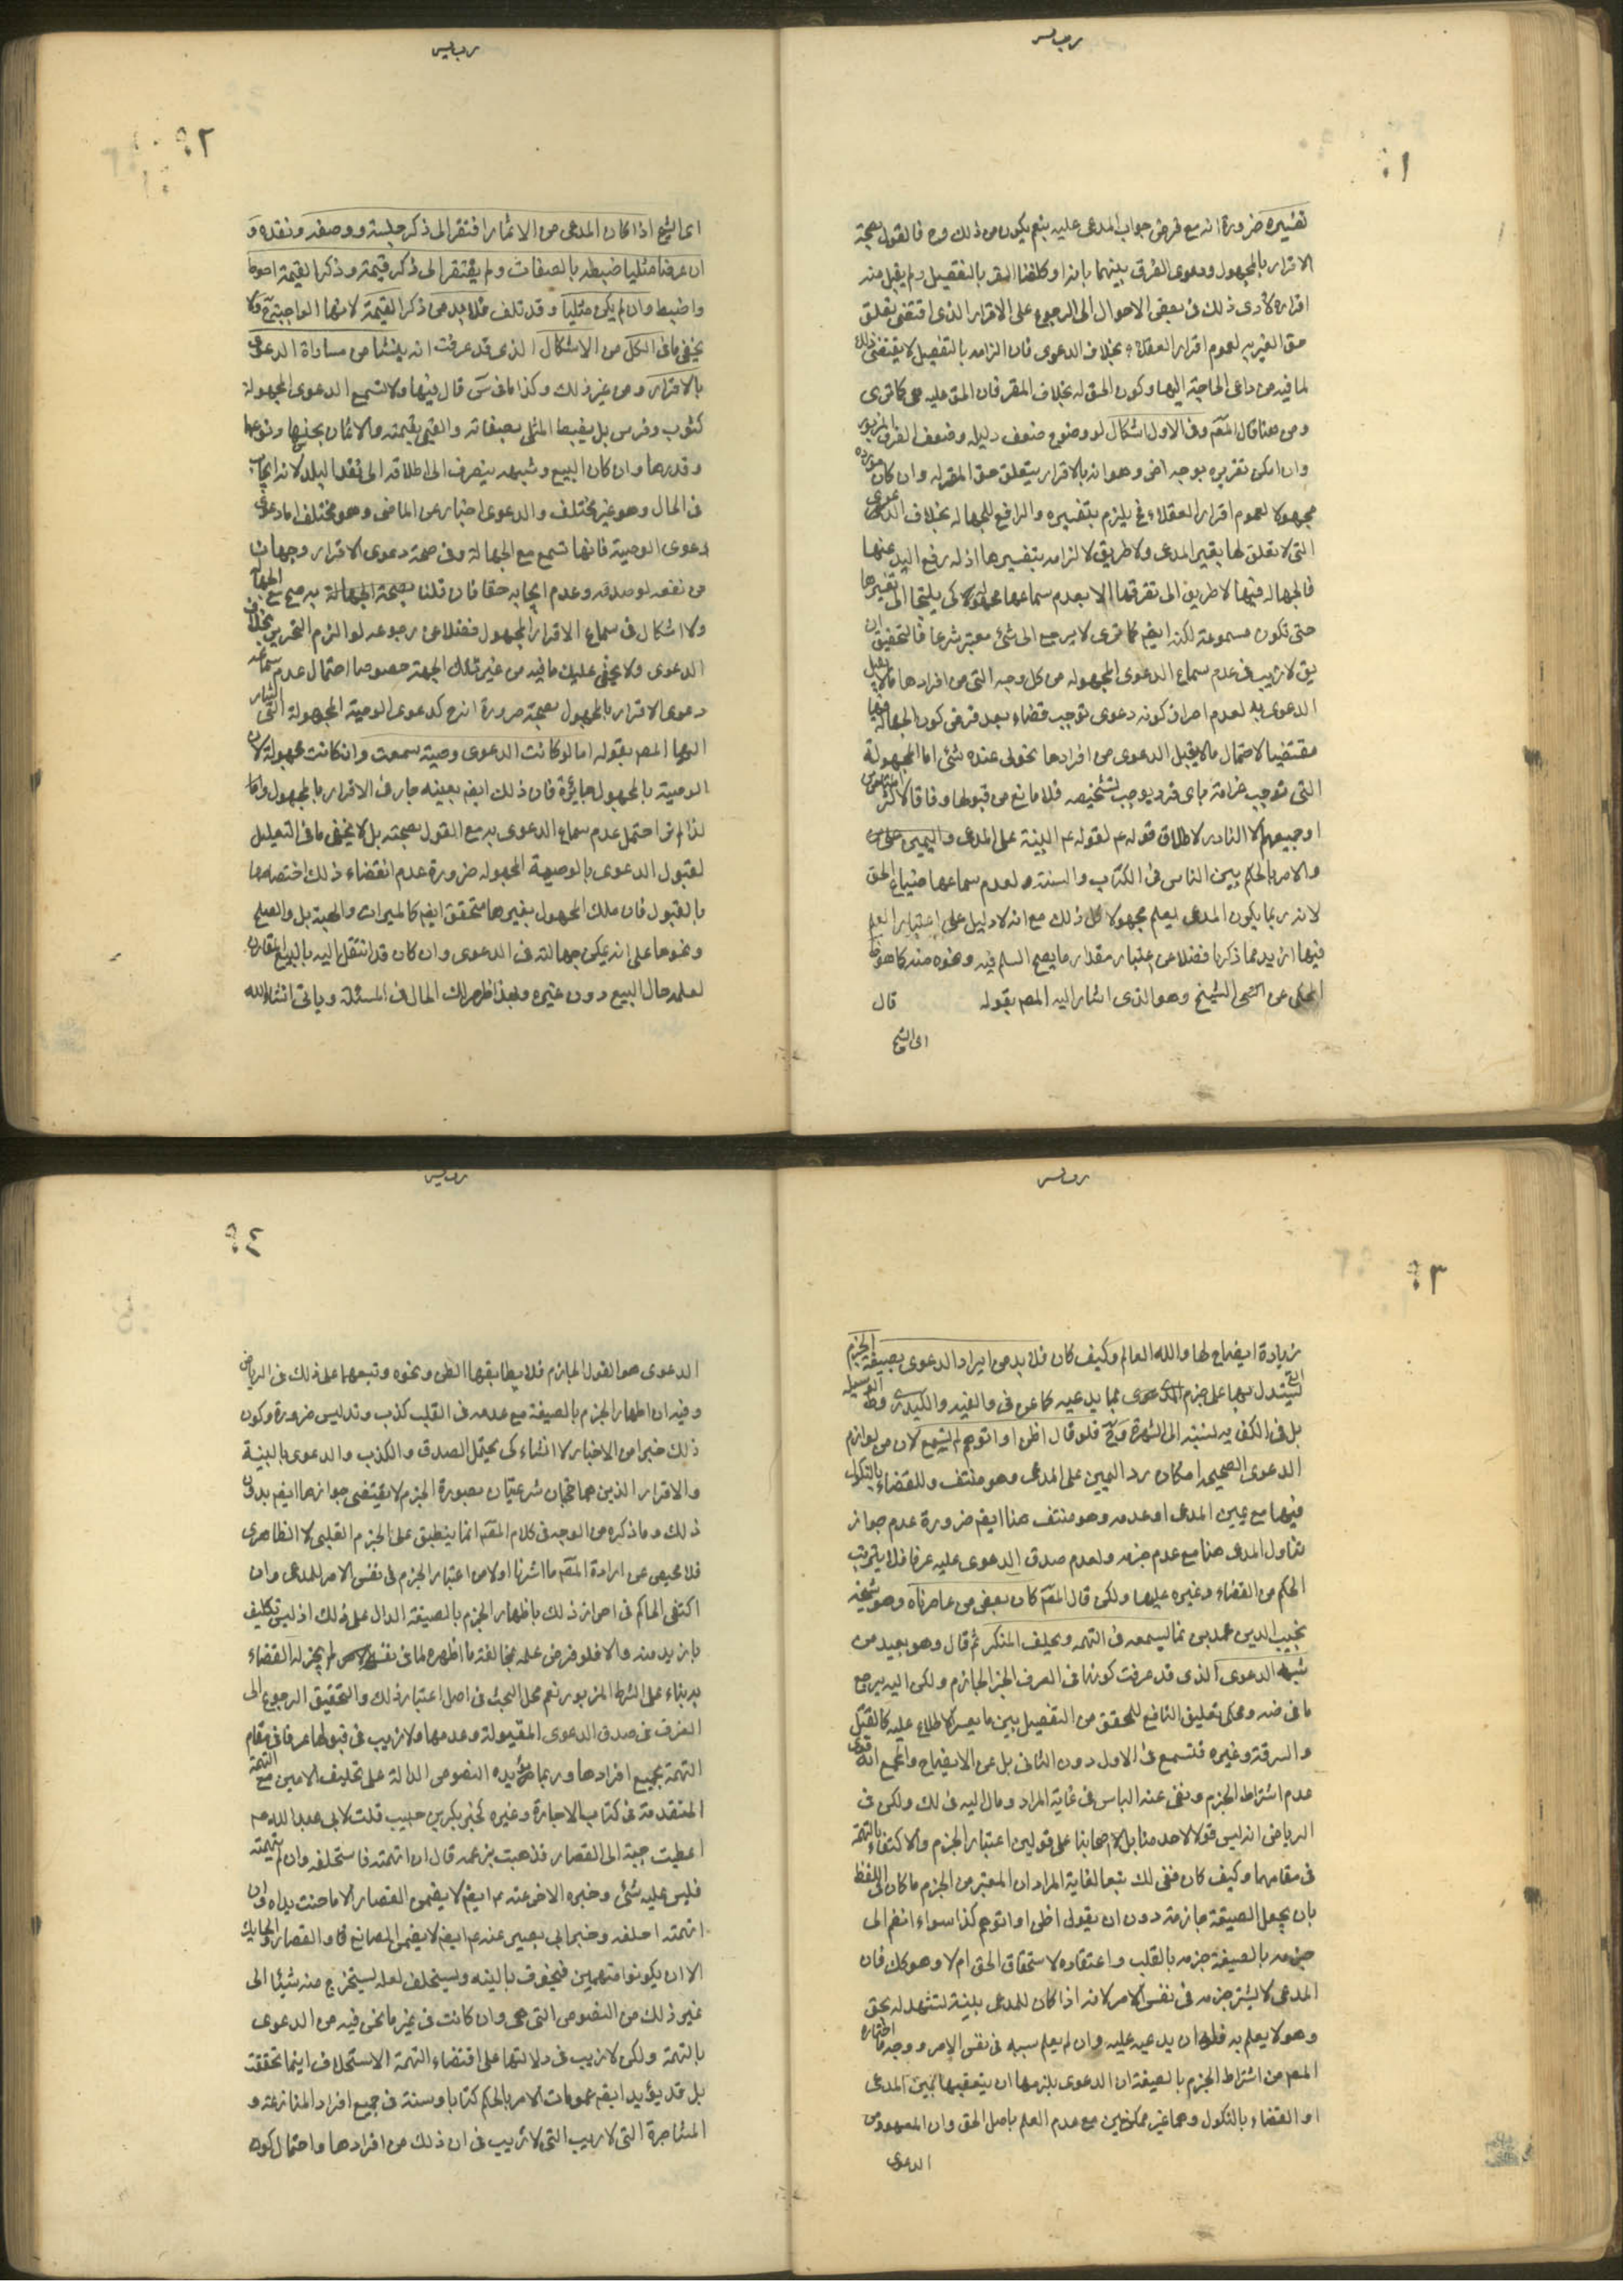 ١
تفسيره ضرورة انه مع فرض جواب المدعى عليه بنعم يكون من ذلك وح فالقول بصحة
الاقرار بالمجهول ودعوى الفرق بينهما بانا لو كلفنا المقر بالتفصيل ولم يقبل منه
اقراره لأدى ذلك فى بعض الاحوال الى الرجوع على الاقرار الذى اقتضى تعلق
حق الغير به لعموم اقرار العقلاء بخلاف الدعوى فان الزامه بالتفصيل لا يقتضى ذلك
لما فيه من داعى الحاجة اليها وكون الحق له بخلاف المقر فان الحق عليه هى كما ترى
ومن هنا قال المصم وفى الاول اشكال لوضوح ضعف دليله وضعف الفرق المزبور
وان امكن تقريره بوجه اخر وهو انه بالاقرار يتعلق حق المقر له وان كان مورده
مجهولا لعموم اقرار العقلاء فح يلزم بتفسيره والرافع للجهالة بخلاف الدعوى
التى لا تعلق لها بغير المدعى ولا طريق لالزامه بتفسيرها اذ له رفع اليد عنها
فالجهالة فيها لا طريق الى تفرقها الا بعدم سماعها مجهولة كى يلتجا الى تفسيرها
حتى تكون مسموعة لكنه ايضم كما ترى لا يرجع الى شئ معتبر شرعا فالتحقيق ان
يق لا ريب فى عدم سماع الدعوى المجهولة من كل وجه التى من افرادها ما لا يقبل
الدعوى به لعدم احراز كونه دعوى توجب قضاء بعد فرض كون الجهالة فيها
مقتضيا لاحتمال ما لا يقبل الدعوى من افرادها نحو لى عنده شئى اما المجهولة
التى توجب غرامة باى فرد يوجب تشخيصه فلا مانع من قبولها وفاقا لاكثر المتاخرين
او جميعهم الا النادر لاطلاق قوله عم لقوله عم البينة على المدعى واليمين على من
والامر بالحكم بين الناس فى الكتاب والسنة ولعدم سماعها ضياع الحق
لانه ربما يكون المدعى يعلم مجهولا كل ذلك مع انه لا دليل على اعتبار العلم
فيها ازيد مما ذكرنا فضلا عن اعتبار مقدار ما يصح السلم فيه ونحوه منه كما هو ظ
المحكى عن الشيخ وهو الذى اشار اليه المصم بقوله قال
اى الشيخ
٢
اى الشيخ اذا كان المدعى من الاثمار افتقر الى ذكر جنسه ووصفه ونقده و
ان عرضا مثليا ضبطه بالصفات ولم يفتقر الى ذكر قيمته وذكر القيمة احوط
واضبط وان لم يكن مثليا وقد تلف فلا بد من ذكر القيمة لانها الواجبة ح ولا
يخفى ما فى الكل من الاشكال الذى قد عرفت انه ينشا من مساواة الدعوى
بالاقرار ومن غير ذلك وكذا ما فى س قال فيها ولا تسمع الدعوى المجهولة
كثوب وفرس بل يضبط المثلى بصفاته والقيمى بقيمته والاثمان بجنسها ونوعها
وقدرها وان كان البيع وشبهه ينصرف الى اطلاقه الى نقد البلد لانه ايجاب
فى الحال وهو غير مختلف والدعوى اخبار عن الماضى وهو مختلف اما دعوى
دعوى الوصية فانها تسمع مع الجهالة وفى صحة دعوى الاقرار وجهان
من نفعه لو صدقه وعدم ايجابه حقا فان قلنا بصحة الجهالة به صح مع الجهالة
ولا اشكال فى سماع الاقرار المجهول فضلا عن رجوعه لو الزم التحرير بخلاف
الدعوى ولا يخفى عليك ما فيه من غير تلك الجهة خصوصا احتمال عدم سماعه
دعوى الاقرار بالمجهول بصحة ضرورة انه ح كدعوى الوصية المجهولة التى اشار
اليها المصم بقوله اما لو كانت الدعوى وصية سمعت وان كانت مجهولة لان
الوصية بالمجهول جائزة فان ذلك ايضم بعينه جار فى الاقرار بالمجهول
لذا لم نر احتمل عدم سماع الدعوى به مع القول بصحته بل لا يخفى ما فى التعليل
لقبول الدعوى بالوصية المجهولة ضرورة عدم اقتضاء ذلك اختصاصها
بالقبول فان ملك المجهول بغيرها متحقق ايضم كالميراث والهبة بل والصلح
ونحوها على انه يمكن جهالته فى الدعوى وان كان قد انتقل اليه بالبيع المقارن
لعلمه حال البيع دون غيره وبهذا ظهر لك الحال فى المسئلة وياتى انشاء الله
٣
زيادة ايضاح لها والله العالم وكيف كان فلا بد من ايراد الدعوى بصيغة الجزم
التى يستدل بها على جزم المدعى بما يدعيه كما عن فى والغنيه والكيدرى وظ الوسيله
بل فى الكفايه نسبته الى الشهرة وح فلو قال اظن او اتوهم لم تسمع لان من لوازم
الدعوى الصحيحه امكان رد اليمين على المدعى وهو منتف وللقضاء بالنكول
فيها مع يمين المدعى او عدمه وهو منتف هنا ايضم ضرورة عدم جواز
تناول المدعى هنا مع عدم جزمه ولعدم صدق الدعوى عليه عرفا فلا يترتب
الحكم من القضاء وغيره عليها ولكن قال المصم كان بعض من عاصرناه وهو شيخه
نجيب الدين محمد بن نما يسمعه فى التهمه ويحلف المنكر ثم قال وهو بعيد عن
شبه الدعوى الذى قد عرفت كونها فى العرف الخبر الجازم ولكن اليه يرجع
ما فى ضه ومحكى تعليق النافع للمحقق من التفصيل بين ما يعسر الاطلاع عليه كالقتل
والسرقة وغيره فتسمع فى الاول دون الثانى بل عن الايضاح والمجمع انه قوى
عدم اشتراط الجزم ونفى عنه الباس فى غاية المراد ومال اليه فى لك ولكن فى
الرياض انه ليس قولا لاحد منا بل لاصحابنا على قولين اعتبار الجزم والاكتفاء بالتهمة
فى مقامها وكيف كان ففى لك تبعا لغاية المراد ان المعتبر من الجزم ما كان فى اللفظ
بان يجعل الصيغة جازمة دون ان يقول اظن او اتوهم كذا سواء انضم الى
جزمه بالصيغة جزمه بالقلب واعتقاده لاستحقاق الحق ام لا وهو كك فان
المدعى لا يشترط جزمه فى نفس الامر لانه اذا كان للمدعى بينة تشهد له بحق
وهو لا يعلم به فله ان يدعيه عليه وان لم يعلم سببه فى نفس الامر ووجه ما اختاره
المصم من اشتراط الجزم بالصيغة ان الدعوى يلزمها ان يتعقبها يمين المدعى
او القضاء بالنكول وهما غير ممكنين مع عدم العلم باصل الحق وان المعهود من
الدعوى
٤
الدعوى هو القول الجازم فلا يطابقها الظن ونحوه وتبعهما على ذلك فى الرياض
وفيه ان اظهار الجزم بالصيغة مع عدمه فى القلب كذب وتدليس ضرورة وكون
ذلك خبرا من الاخبار لا انشاء كى يحتمل الصدق والكذب والدعوى بالبينة
والاقرار الذين هما حجتان شرعيتان بصورة الجزم لا يقتضى جوازها ايضم بدون
ذلك وما ذكره من الوجه فى كلام المصم انما ينطبق على الجزم القلبى لا الظاهرى
فلا محيص عن ارادة المصم ما اشرنا اولا من اعتبار الجزم فى نفس الامر للمدعى وان
اكتفى الحاكم فى احراز ذلك باظهار الجزم بالصيغة الدال على ذلك اذ ليس تكليف
بازيد منه والا فلو فرض علمه بمخالفة ما اظهره لما فى نفسه لم يجز له القضاء
به بناء على الشرط المزبور نعم محل البحث فى اصل اعتبار ذلك والتحقيق الرجوع الى
العرف فى صدق الدعوى المقبولة وعدمها ولا ريب فى قبولها عرفا فى مقام
التهمة بجميع افرادها وربما يؤيده النصوص الدالة على تحليف الامين مع التهمة
المتقدمة فى كتاب الاجارة وغيره كخبر بكر بن حبيب قلت لابى عبد الله عم
اعطيت جبة الى القصار فذهبت بزعمه قال ان اتهمته فاستحلفه وان لم تتهمه
فليس عليه شئ وخبره الاخر عنه عم ايضم لا يضمن القصار الا ما جنت يداه وان
اتهمته احلفه وخبر ابى بصير عنه عم ايضم لا يضمن الصانع ولا القصار ولا الحايك
الا ان يكونوا متهمين فيخوف بالبينه ويستحلف لعله يستخرج منه شيئا الى
غير ذلك من النصوص التى هى وان كانت فى غير ما نحن فيه من الدعوى
بالتهمة ولكن لا ريب فى دلالتها على اقتضاء التهمة الاستحلاف اينما تحققت
بل قد يؤيد ايضم عمومات الامر بالحكم كتابا وسنة فى جميع افراد المنازعة و
المشاجرة التى لا ريب التى لا ريب فى ان ذلك من افرادها واحتمال كون